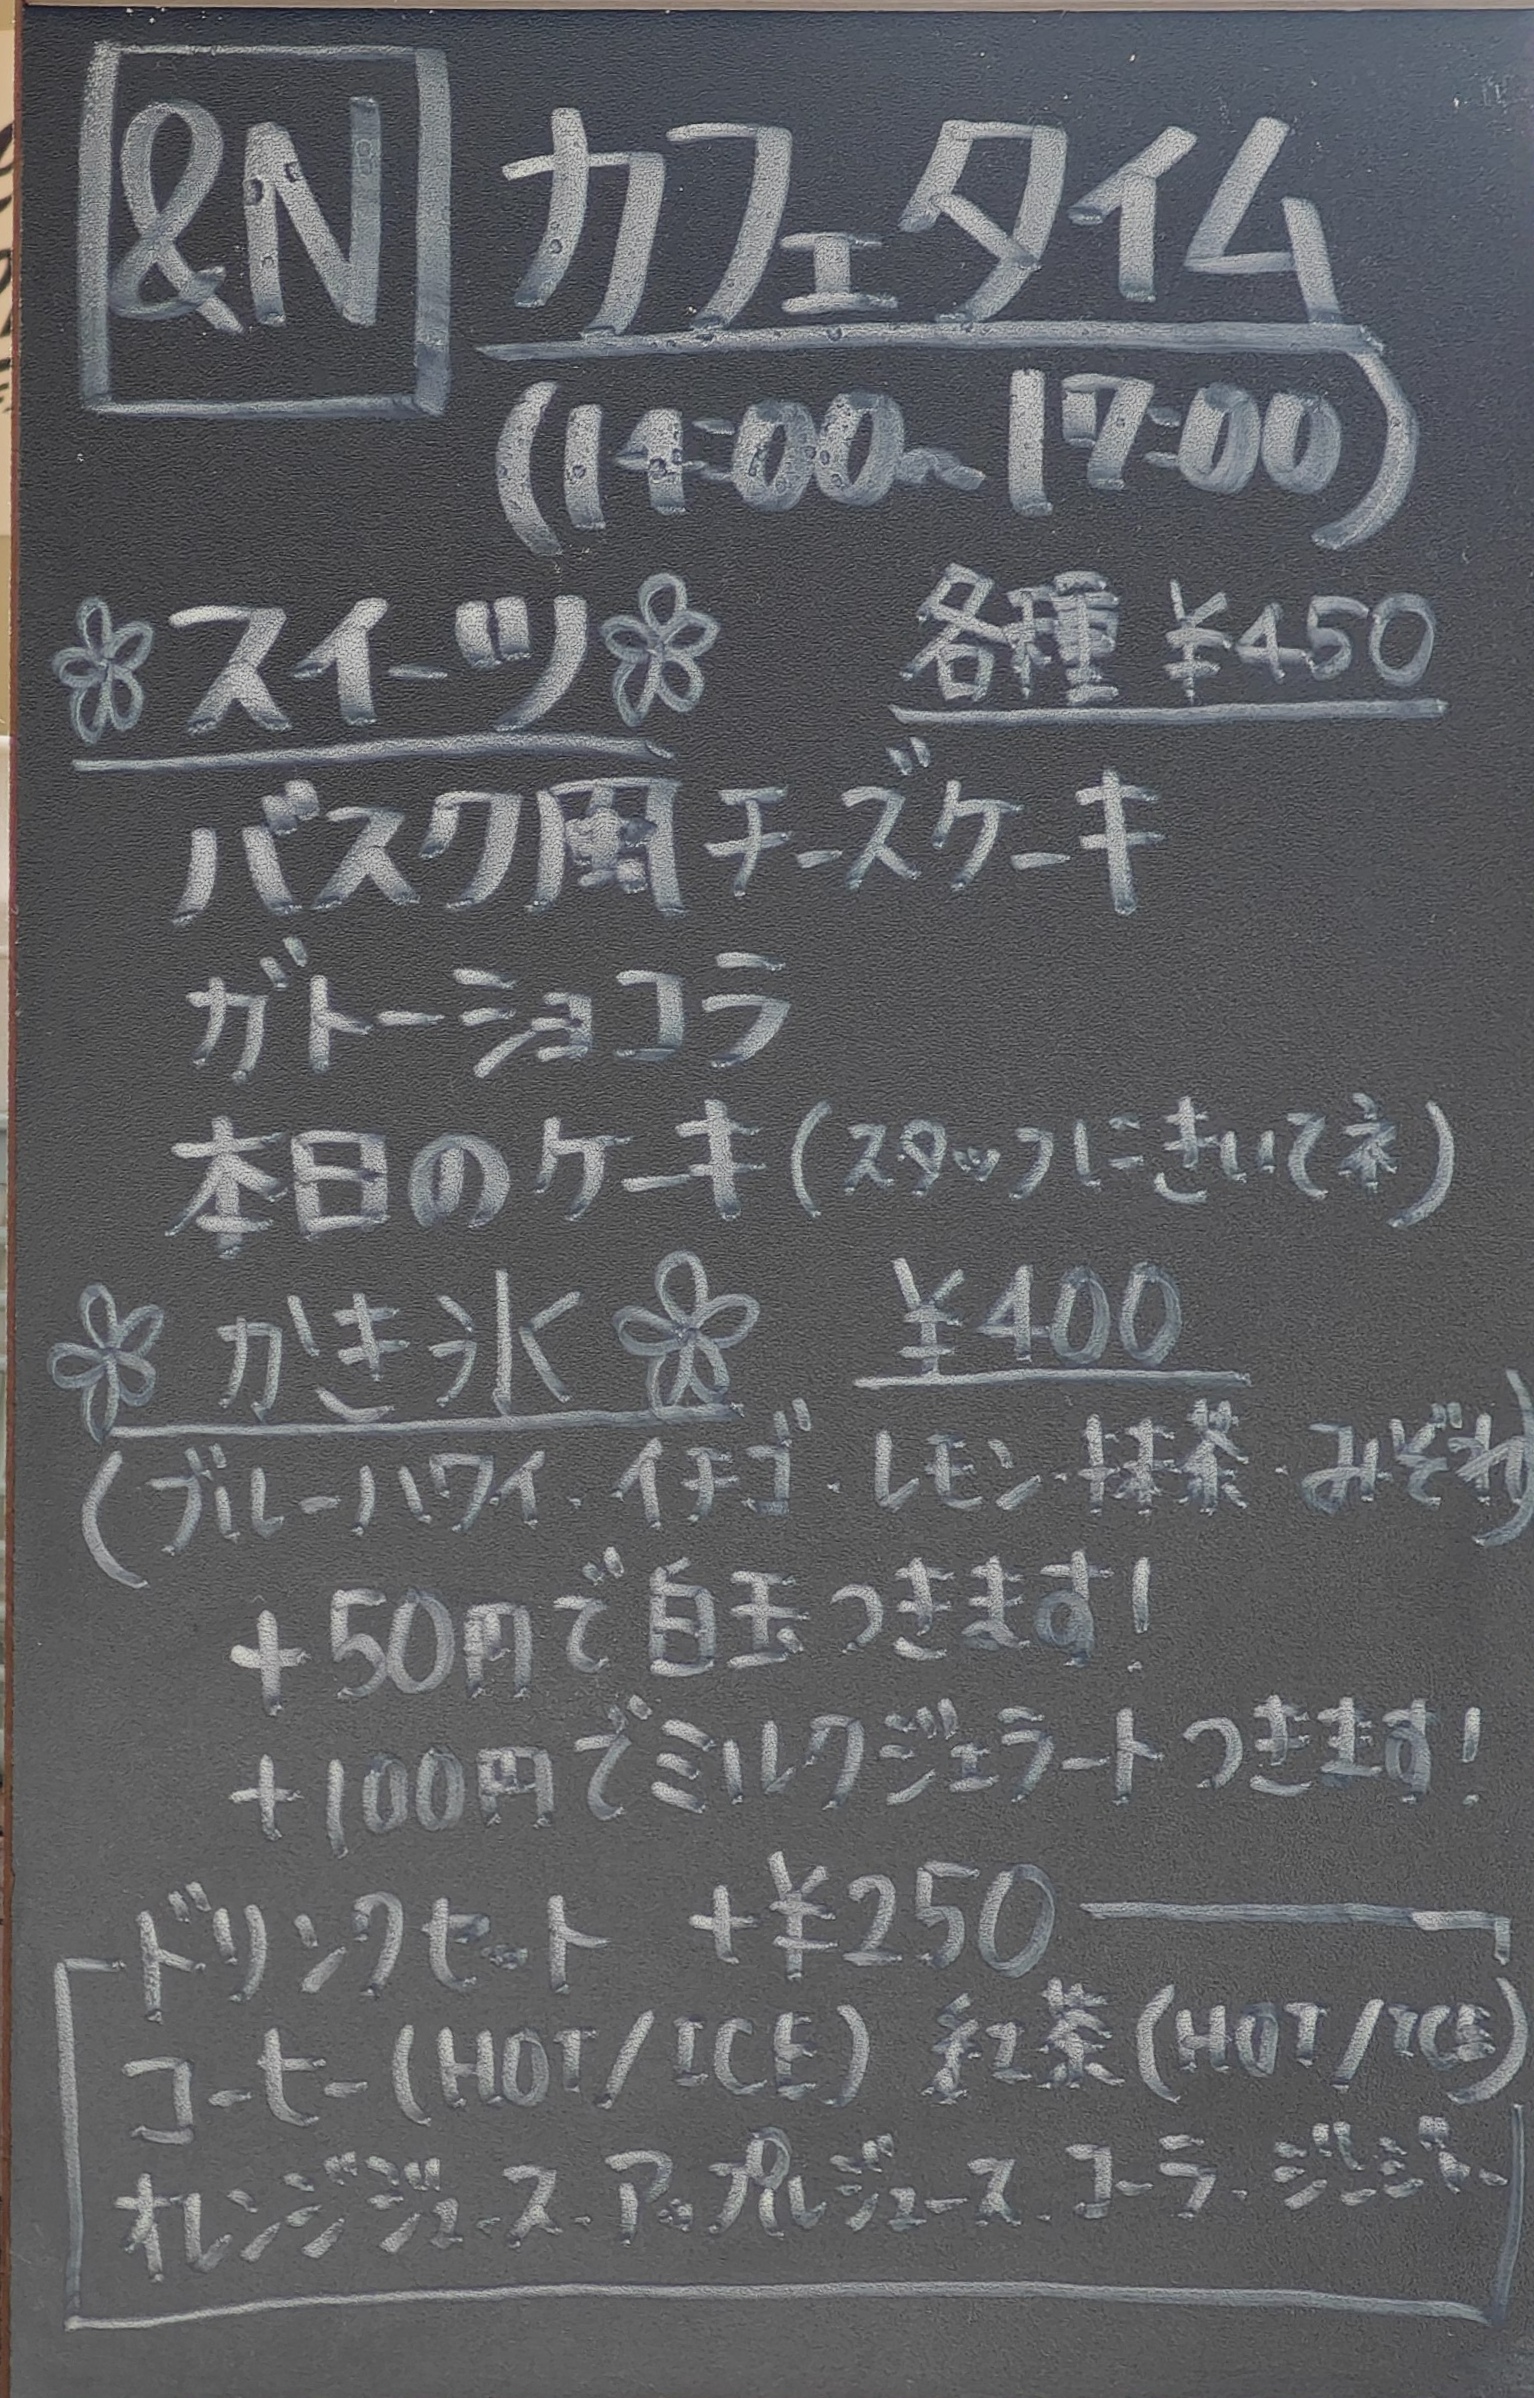 &N カフェタイム
(11:00〜17:00)
スイーツ 各種 ¥450
バスク風チーズケーキ
ガトーショコラ
本日のケーキ(スタッフにきいてネ)
かき氷 ¥400
(ブルーハワイ・イチゴ・レモン・抹茶・みぞれ)
+50円で白玉つきます!
+100円でミルクジェラートつきます!
ドリンクセット +¥250
コーヒー(HOT/ICE) 紅茶(HOT/ICE)
オレンジジュース・アップルジュース・コーラ・ジンジャー